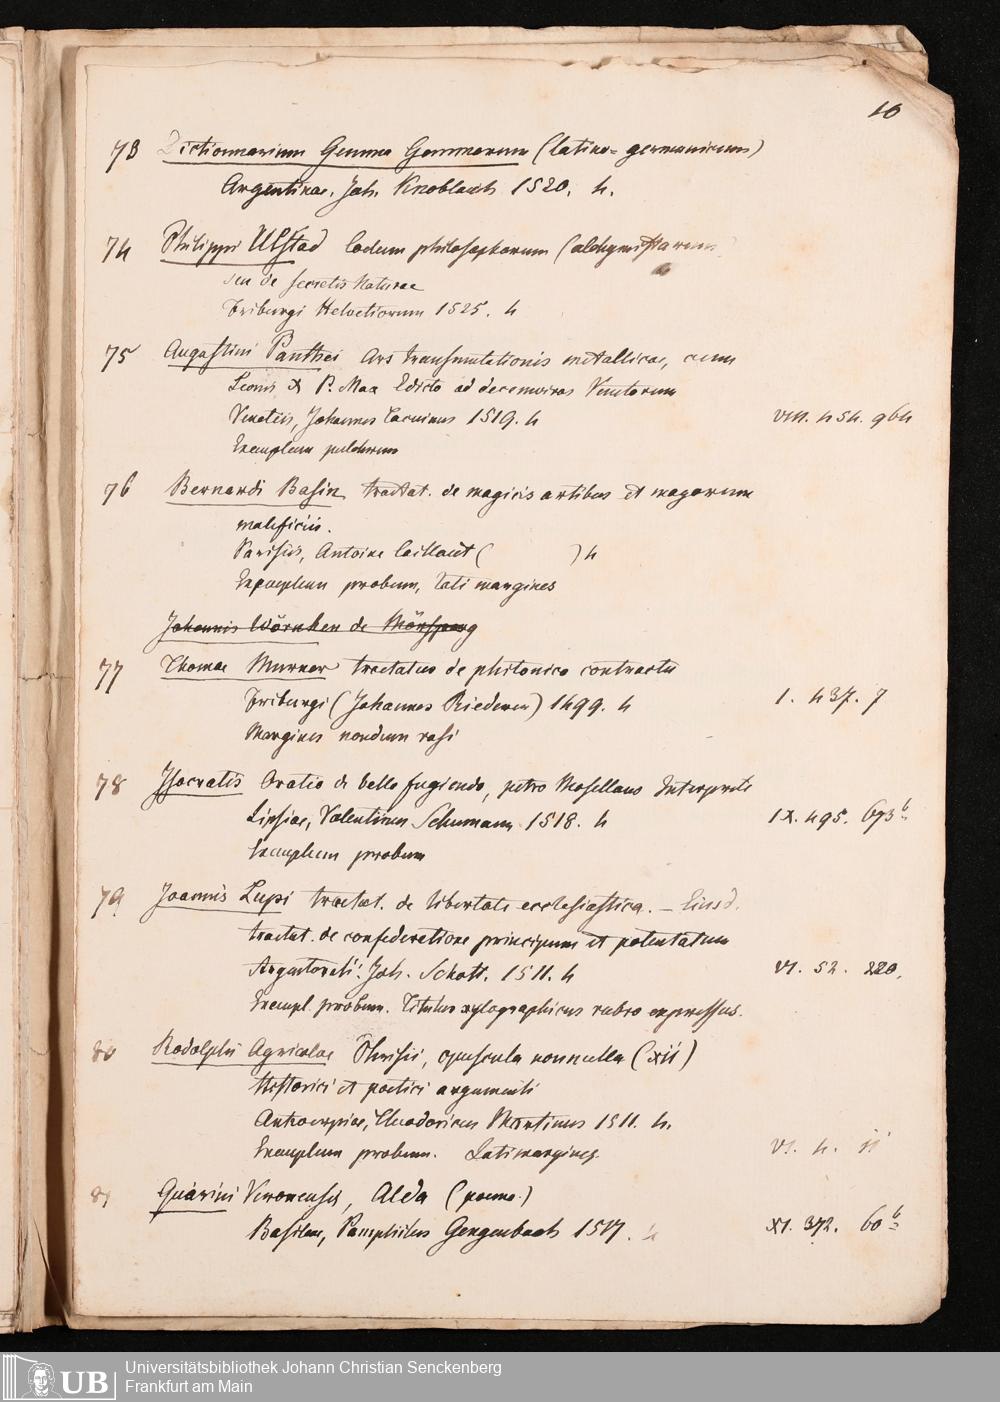 10
73 Dictionnarium Gemma Gemmarum (latino-germanicum)
Argentinae, Joh. Knoblauch 1520. 4.
74 Philippi Ulstad Coelum philosophorum (alchymistarum)
seu de secretis Naturae
Friburgi Helvetiorum 1525. 4
75 Augustini Panthei Ars transmutationis metallicae, cum
Leonis X P. Max Edicto ad decemviros Venetorum
Venetiis, Johannes Tacuinus 1519. 4 VIII. 454. 964
Exemplum pulchrum
76 Bernardi Basin tractat. de magicis artibus et magorum
maleficiis.
Parisiis, Antoine Caillaut ( ) 4
Exemplum probum, lati margines
Johannis Wörnhen de Mörsperg
77 Thomae Murner tractatus de phitonico contractu
Friburgi (Johannes Riederer) 1499. 4 I. 437. 7
Margines nondum rasi
78 Isocratis Oratio de bello fugiendo, petro Mosellano Interprete
Lipsiae, Valentinus Schumann 1518. 4 IX. 495. 673 b
Exemplum probum
79 Joannis Lupi tractat. de libertate ecclesiastica. – Eiusd.
tractat. de confederatione principum et potentatum
Argentorati: Joh. Schott. 1511. 4 VI. 52. 220.
Exempl. probum. Titulus xylographicus rubro expressus.
80 Rodolphi Agricolae Phrisii, opuscula nonnulla (xii)
Historici et poetici argumenti
Antwerpiae, Theodoricus Martinus 1511. 4. VI. 4. 11
Exemplum probum. Lati margines.
81 Guarini Veronensis, Alda (poema)
Basileae, Pamphilus Gengenbach 1517. 4 XI. 372. 60 b
UB Universitätsbibliothek Johann Christian Senckenberg
Frankfurt am Main